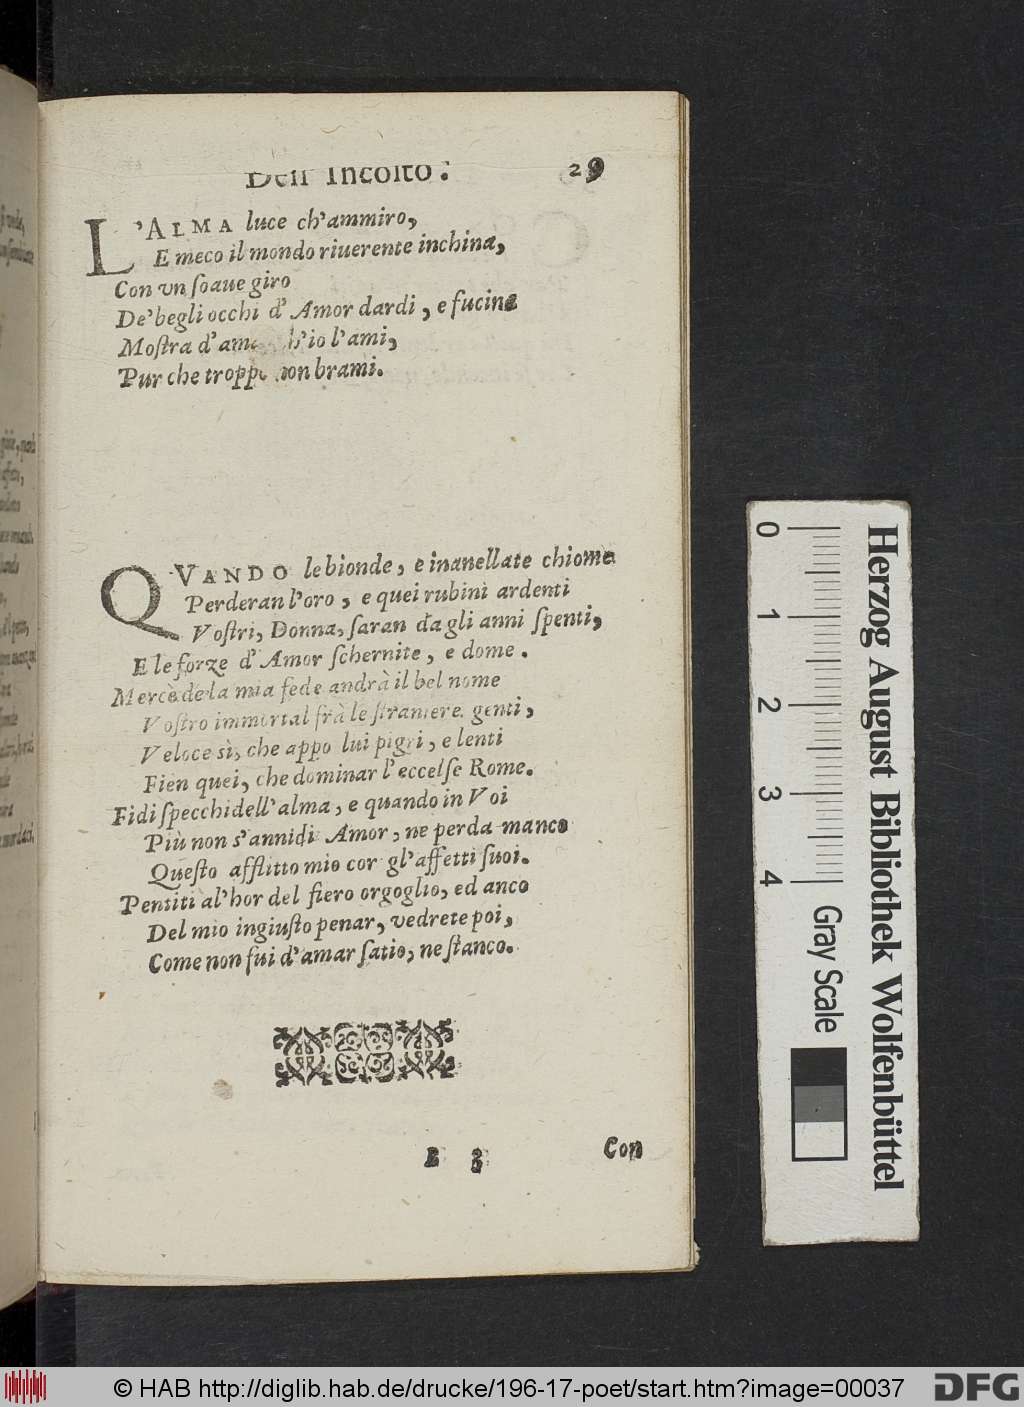 Dell' Incolto. 29
L'ALMA luce ch'ammiro,
E meco il mondo riuerente inchina,
Con vn ſoaue giro
De'begli occhi d'Amor dardi, e fucine
Moſtra d'am h'io l'ami,
Pur che troppo non brami.
QVANDO le bionde, e inanellate chiome
Perderan l'oro, e quei rubini ardenti
Voſtri, Donna, ſaran da gli anni ſpenti,
E le forze d'Amor ſchernite, e dome.
Mercè de la mia fede andrà il bel nome
Voſtro immortal frà le ſtraniere genti,
Veloce sì, che appo lui pigri, e lenti
Fien quei, che dominar l'eccelſe Rome.
Fidi ſpecchi dell'alma, e quando in Voi
Più non s'annidi Amor, ne perda manco
Queſto afflitto mio cor gl'affetti ſuoi.
Pentiti al'hor del fiero orgoglio, ed anco
Del mio ingiuſto penar, vedrete poi,
Come non fui d'amar ſatio, ne ſtanco.
B 3 Con
0 1 2 3 4
Herzog August Bibliothek Wolfenbüttel
Gray Scale
© HAB http://diglib.hab.de/drucke/196-17-poet/start.htm?image=00037
DFG